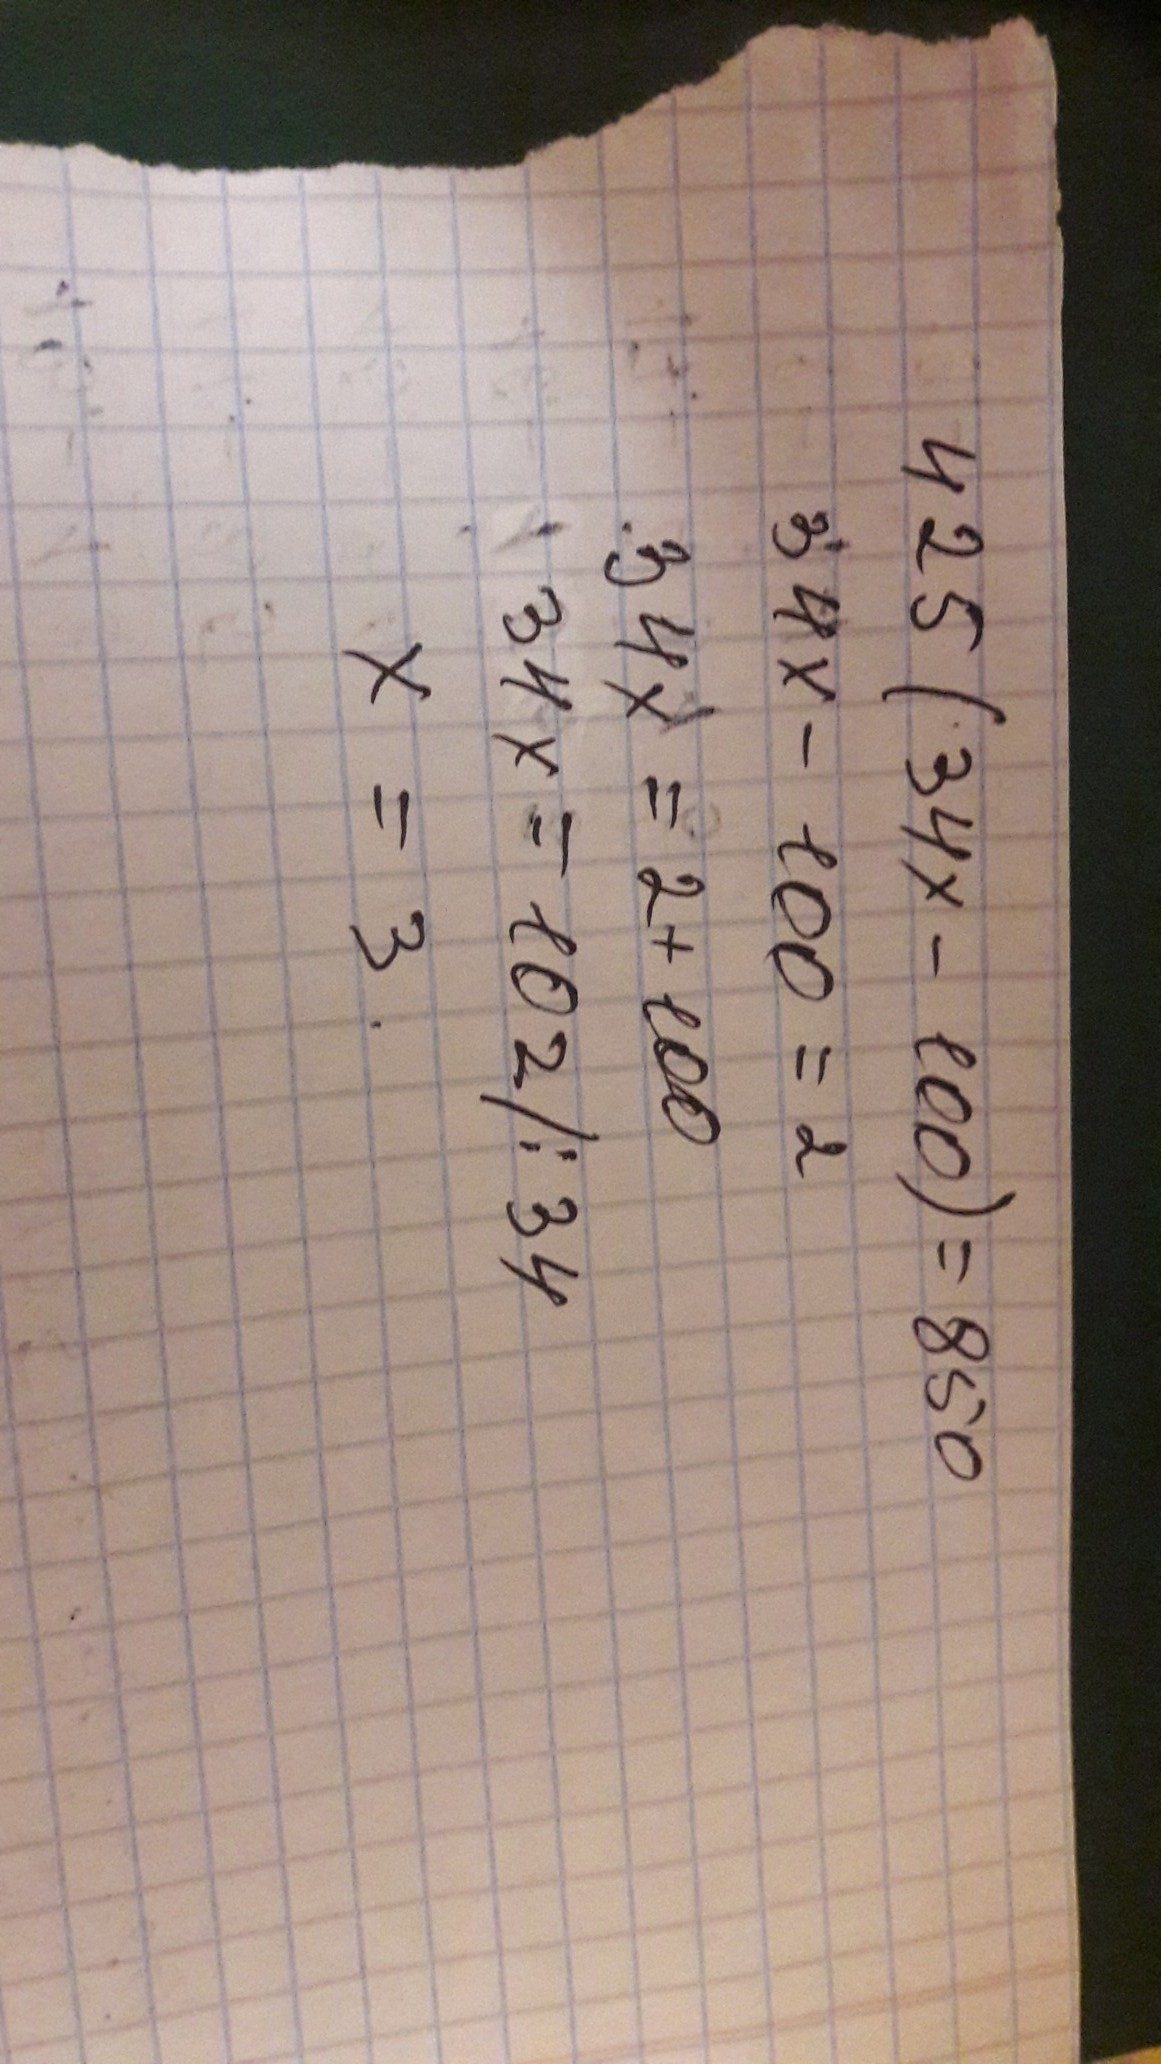 425(34x - 100) = 850
34x - 100 = 2
34x = 2 + 100
34x = 102 /: 34
x = 3.